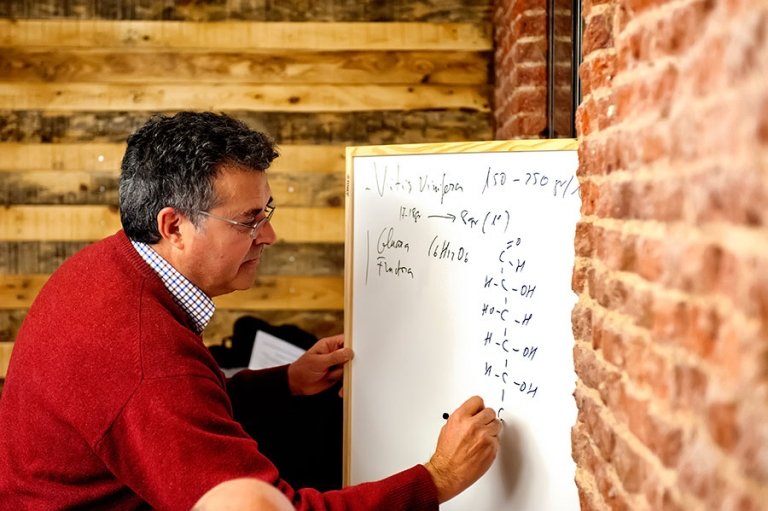 - Vitis Vinifera 150 - 250 gr/
17-18gr → 8gr (1º)
Glucosa C6H12O6
Fructosa
=O
C
H
H - C - OH
HO - C - H
H - C - OH
H - C - OH
C